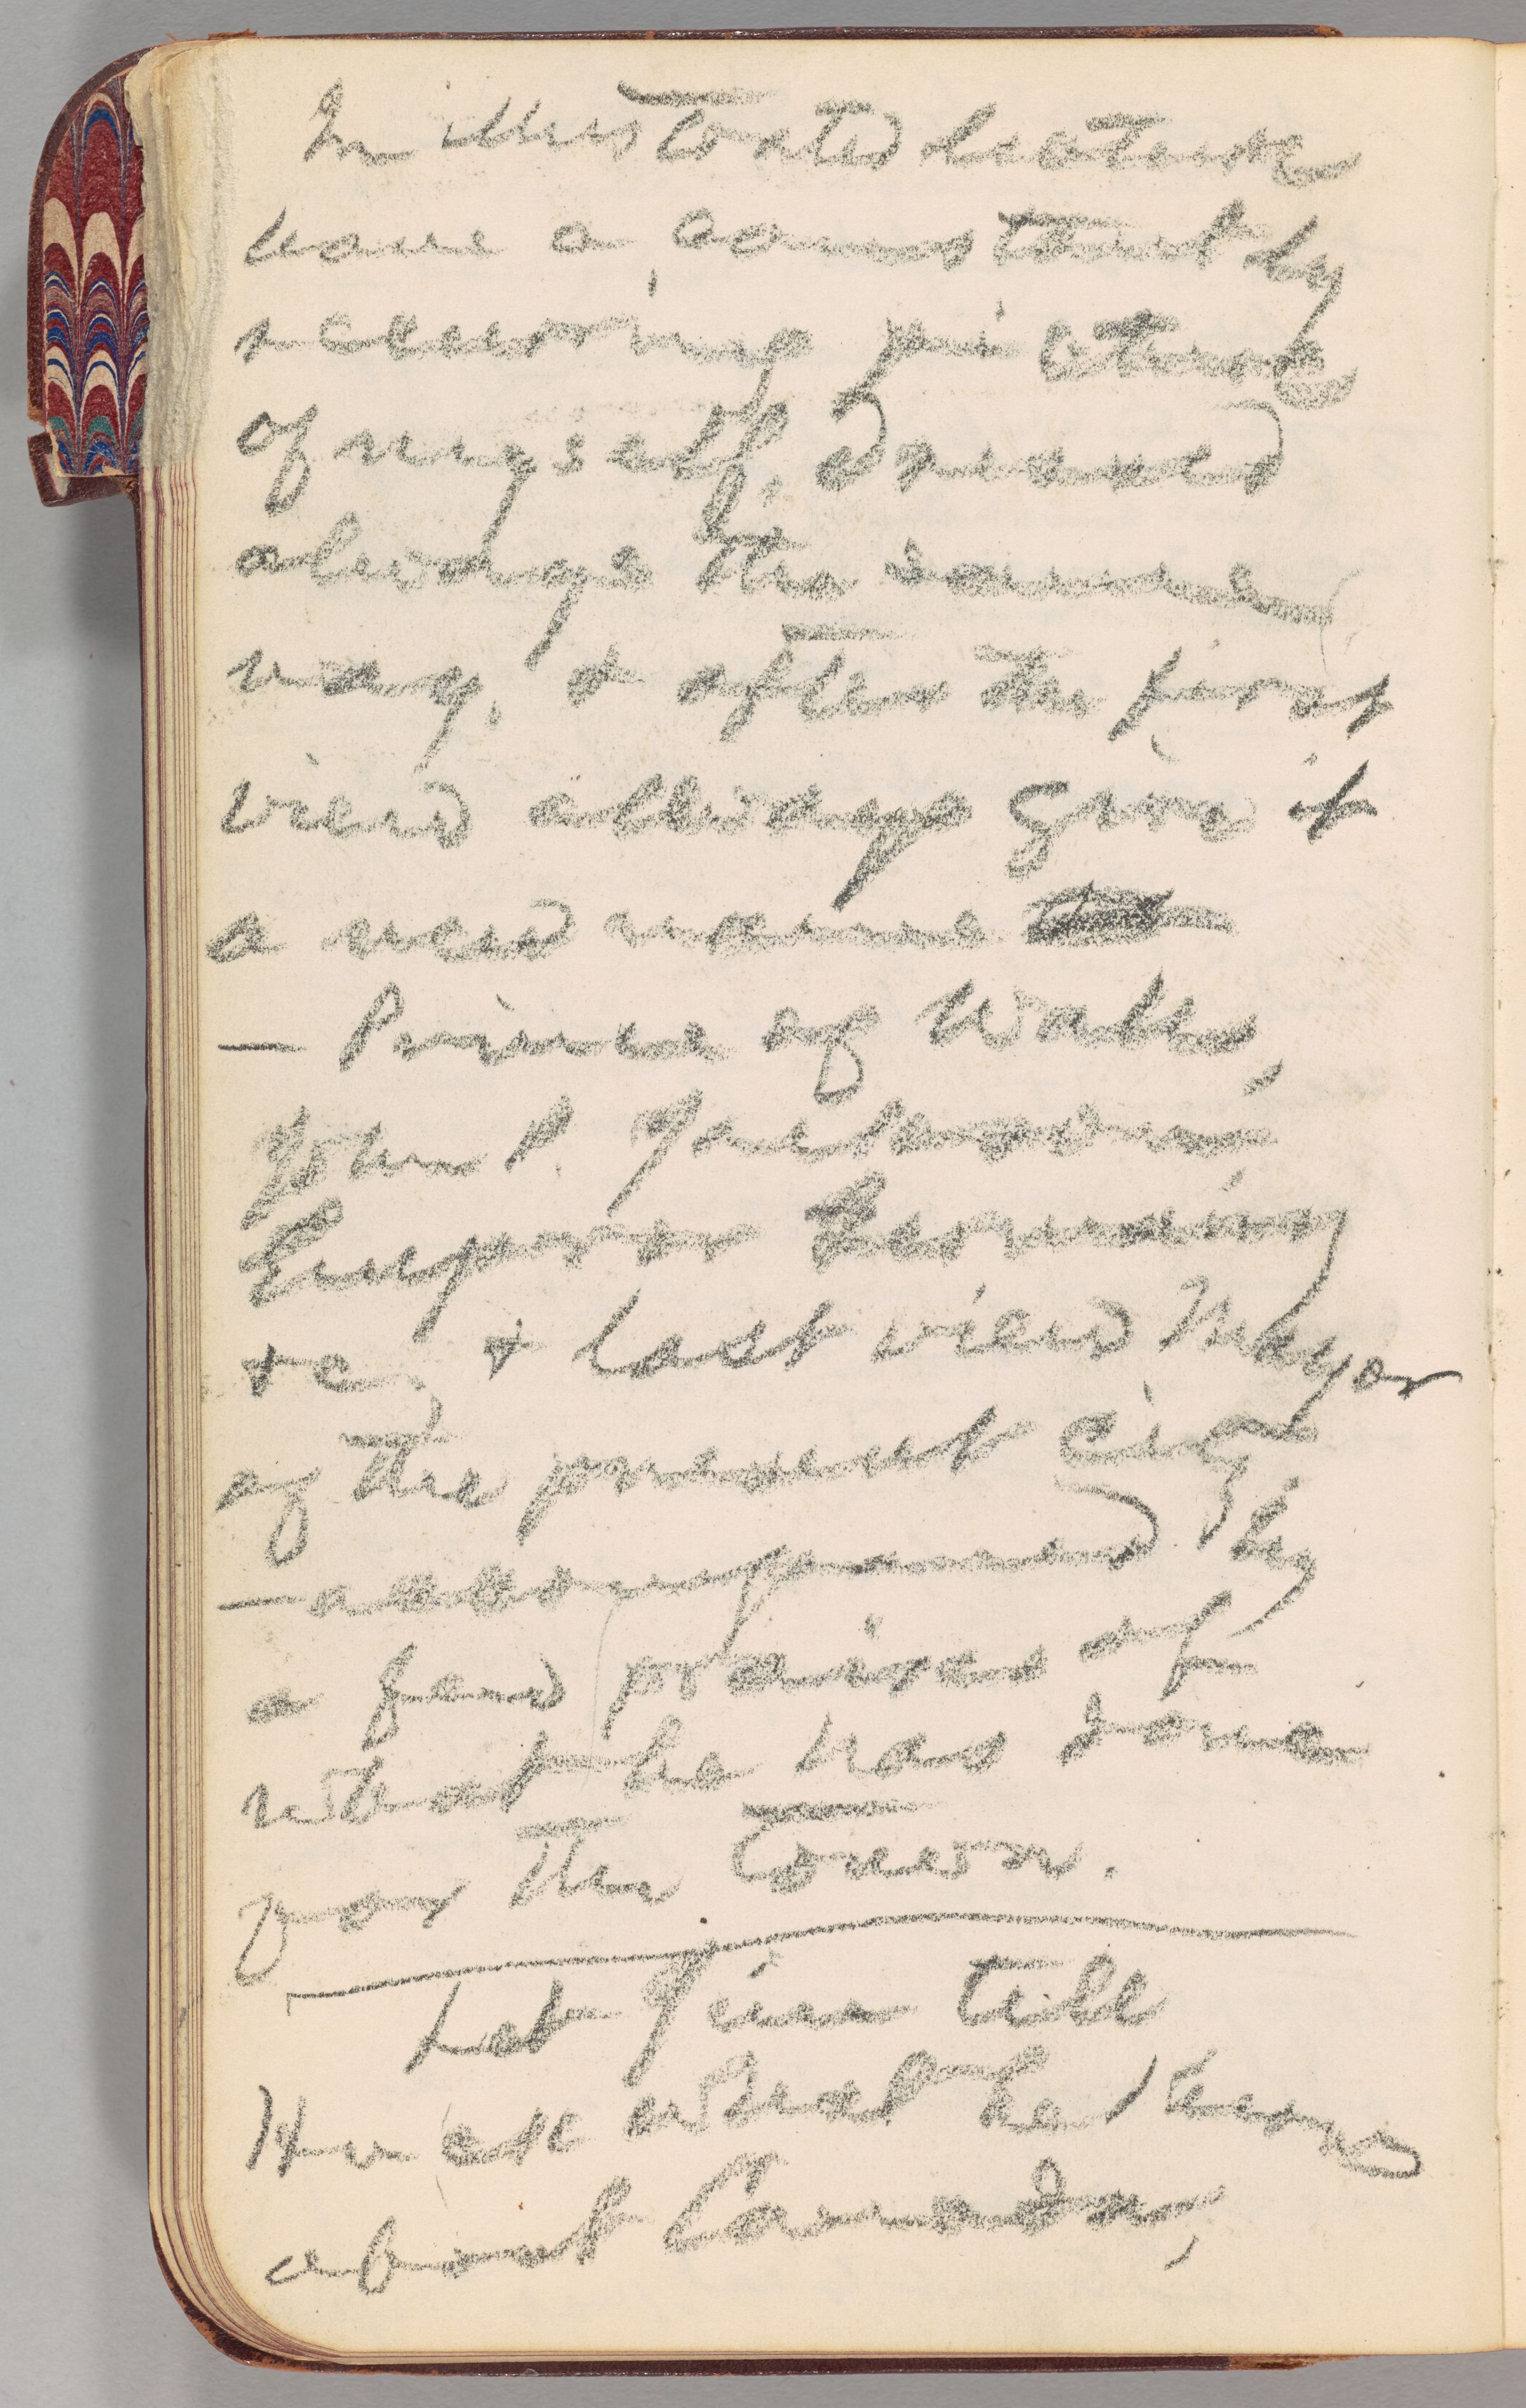 In illustrated lecture
have a constantly
recurring picture
of myself, dressed
always the same
way, & after the first
view always give it
a new name
— Prince of Wales,
John P.
Emperor Germany
&c, & last view Mayor
of the present city
— accompanied by
a few praises of
what he has done
for the town.
Let Jim tell
Huck what he knows
about Canada,